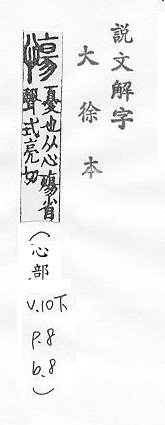 説文解字
大徐本
慯
憂也从心殤省
聲式亮切
(心部
V.10下
P.8
b.8)